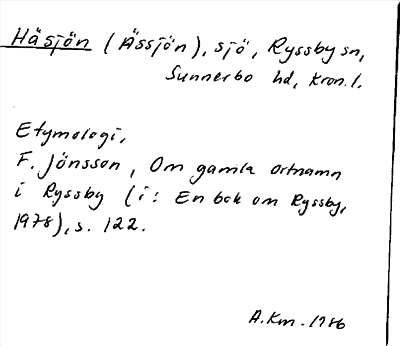 Häsjön (Ässjön), sjö, Ryssby sn,
Sunnerbo hd, Kron. l.
Etymologi,
F. Jönsson, Om gamla ortnamn
i Ryssby (i: En bok om Ryssby,
1978), s. 122.
A.Km. 1986